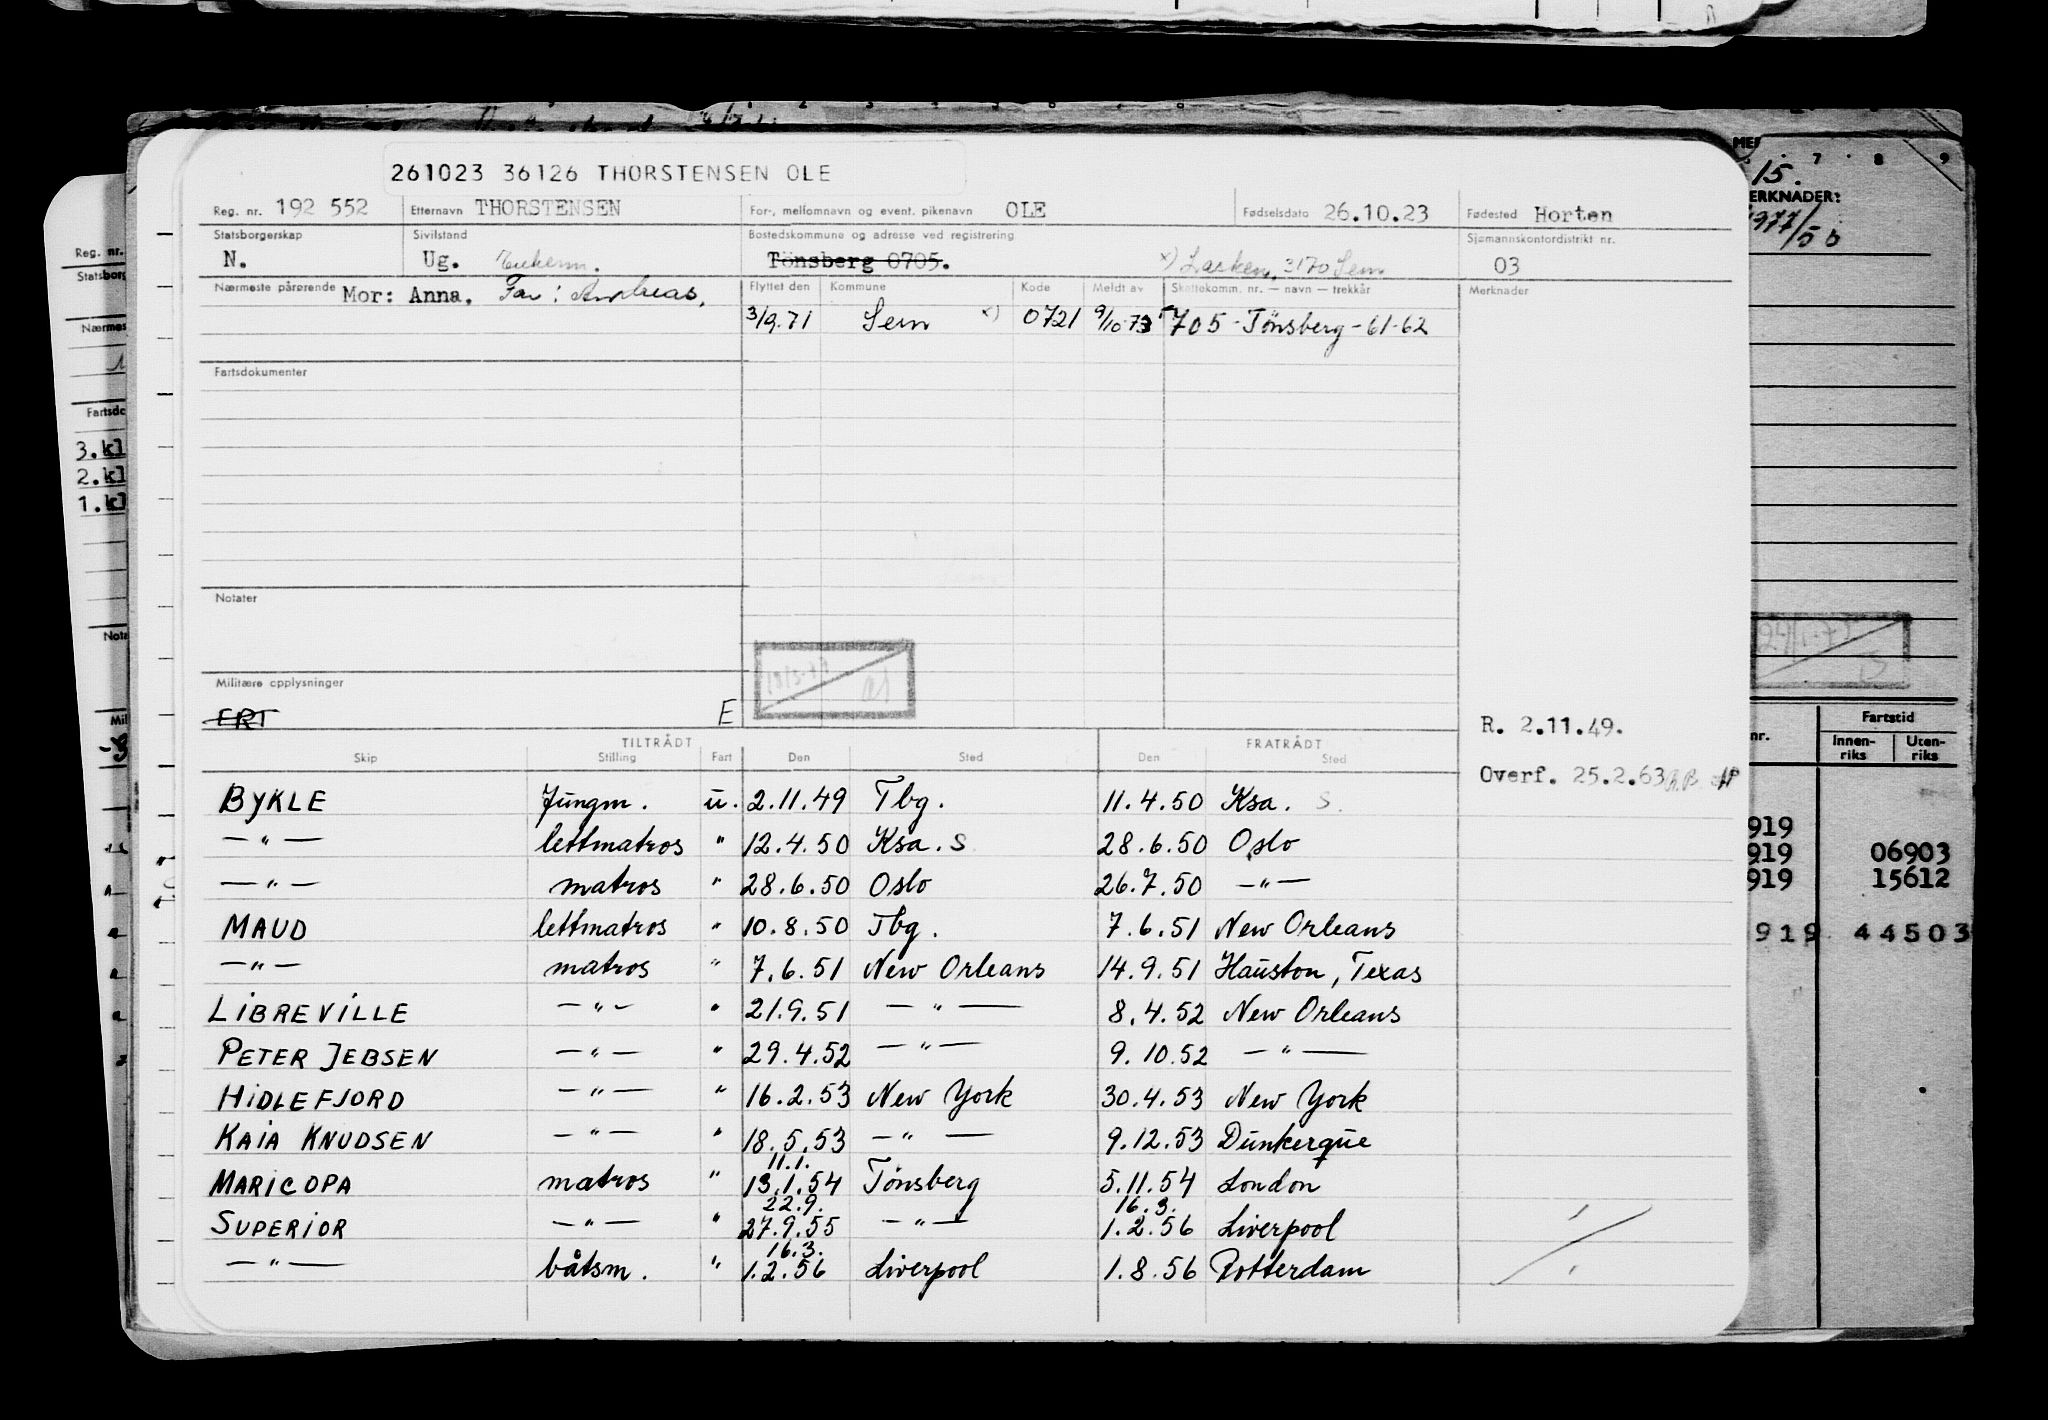 261023 36126 THORSTENSEN OLE
Reg. nr. 192 552 Etternavn THORSTENSEN For-, mellomnavn og event. pikenavn OLE Fødselsdato 26.10.23 Fødested Horten
Statsborgerskap Sivilstand Bostedskommune og adresse ved registrering Sjømannskontordistrikt nr.
N. Ug. Tönsberg 0705. x) 3170 Sem 03
Nærmeste pårørende Mor: Anna, Far: Andreas, Flyttet den Kommune Kode Meldt av Skattekomm. nr. — navn — trekkår Merknader
3/9.71 Sem x) 0721 9/10 73 705 - Tönsberg - 61-62
Fartsdokumenter
Notater
Militære opplysninger
FRT E
R. 2.11.49.
TILTRÅDT FRATRÅDT
Skip Stilling Fart Den Sted Den Sted
Overf. 25.2.63
BYKLE Jungm. u. 2.11.49 Tbg. 11.4.50 Ksa. S.
— " — lettmatros " 12.4.50 Ksa. S 28.6.50 Oslo
— " — matros " 28.6.50 Oslo 26.7.50 — " —
MAUD lettmatros " 10.8.50 Tbg. 7.6.51 New Orleans
— " — matros " 7.6.51 New Orleans 14.9.51 Hauston, Texas
LIBREVILLE — " — " 21.9.51 — " — 8.4.52 New Orleans
PETER JEBSEN — " — " 29.4.52 — " — 9.10.52 — " —
HIDLEFJORD — " — " 16.2.53 New York 30.4.53 New York
KAIA KNUDSEN — " — " 18.5.53 — " — 9.12.53 Dunkerque
11.1.
MARICOPA matros " 13.1.54 Tönsberg 5.11.54 London
22.9. 16.3.
SUPERIOR — " — " 27.9.55 — " — 1.2.56 Liverpool
16.3.
— " — båtsm. " 1.2.56 Liverpool 1.8.56 Rotterdam
Reg. nr.
Fartsdo
3.kl
2.kl
1.kl
7 8 9
15.
ERKNADER:
Fartstid
nr. Innen-riks Uten-riks
919
919 06903
919 15612
919 44503